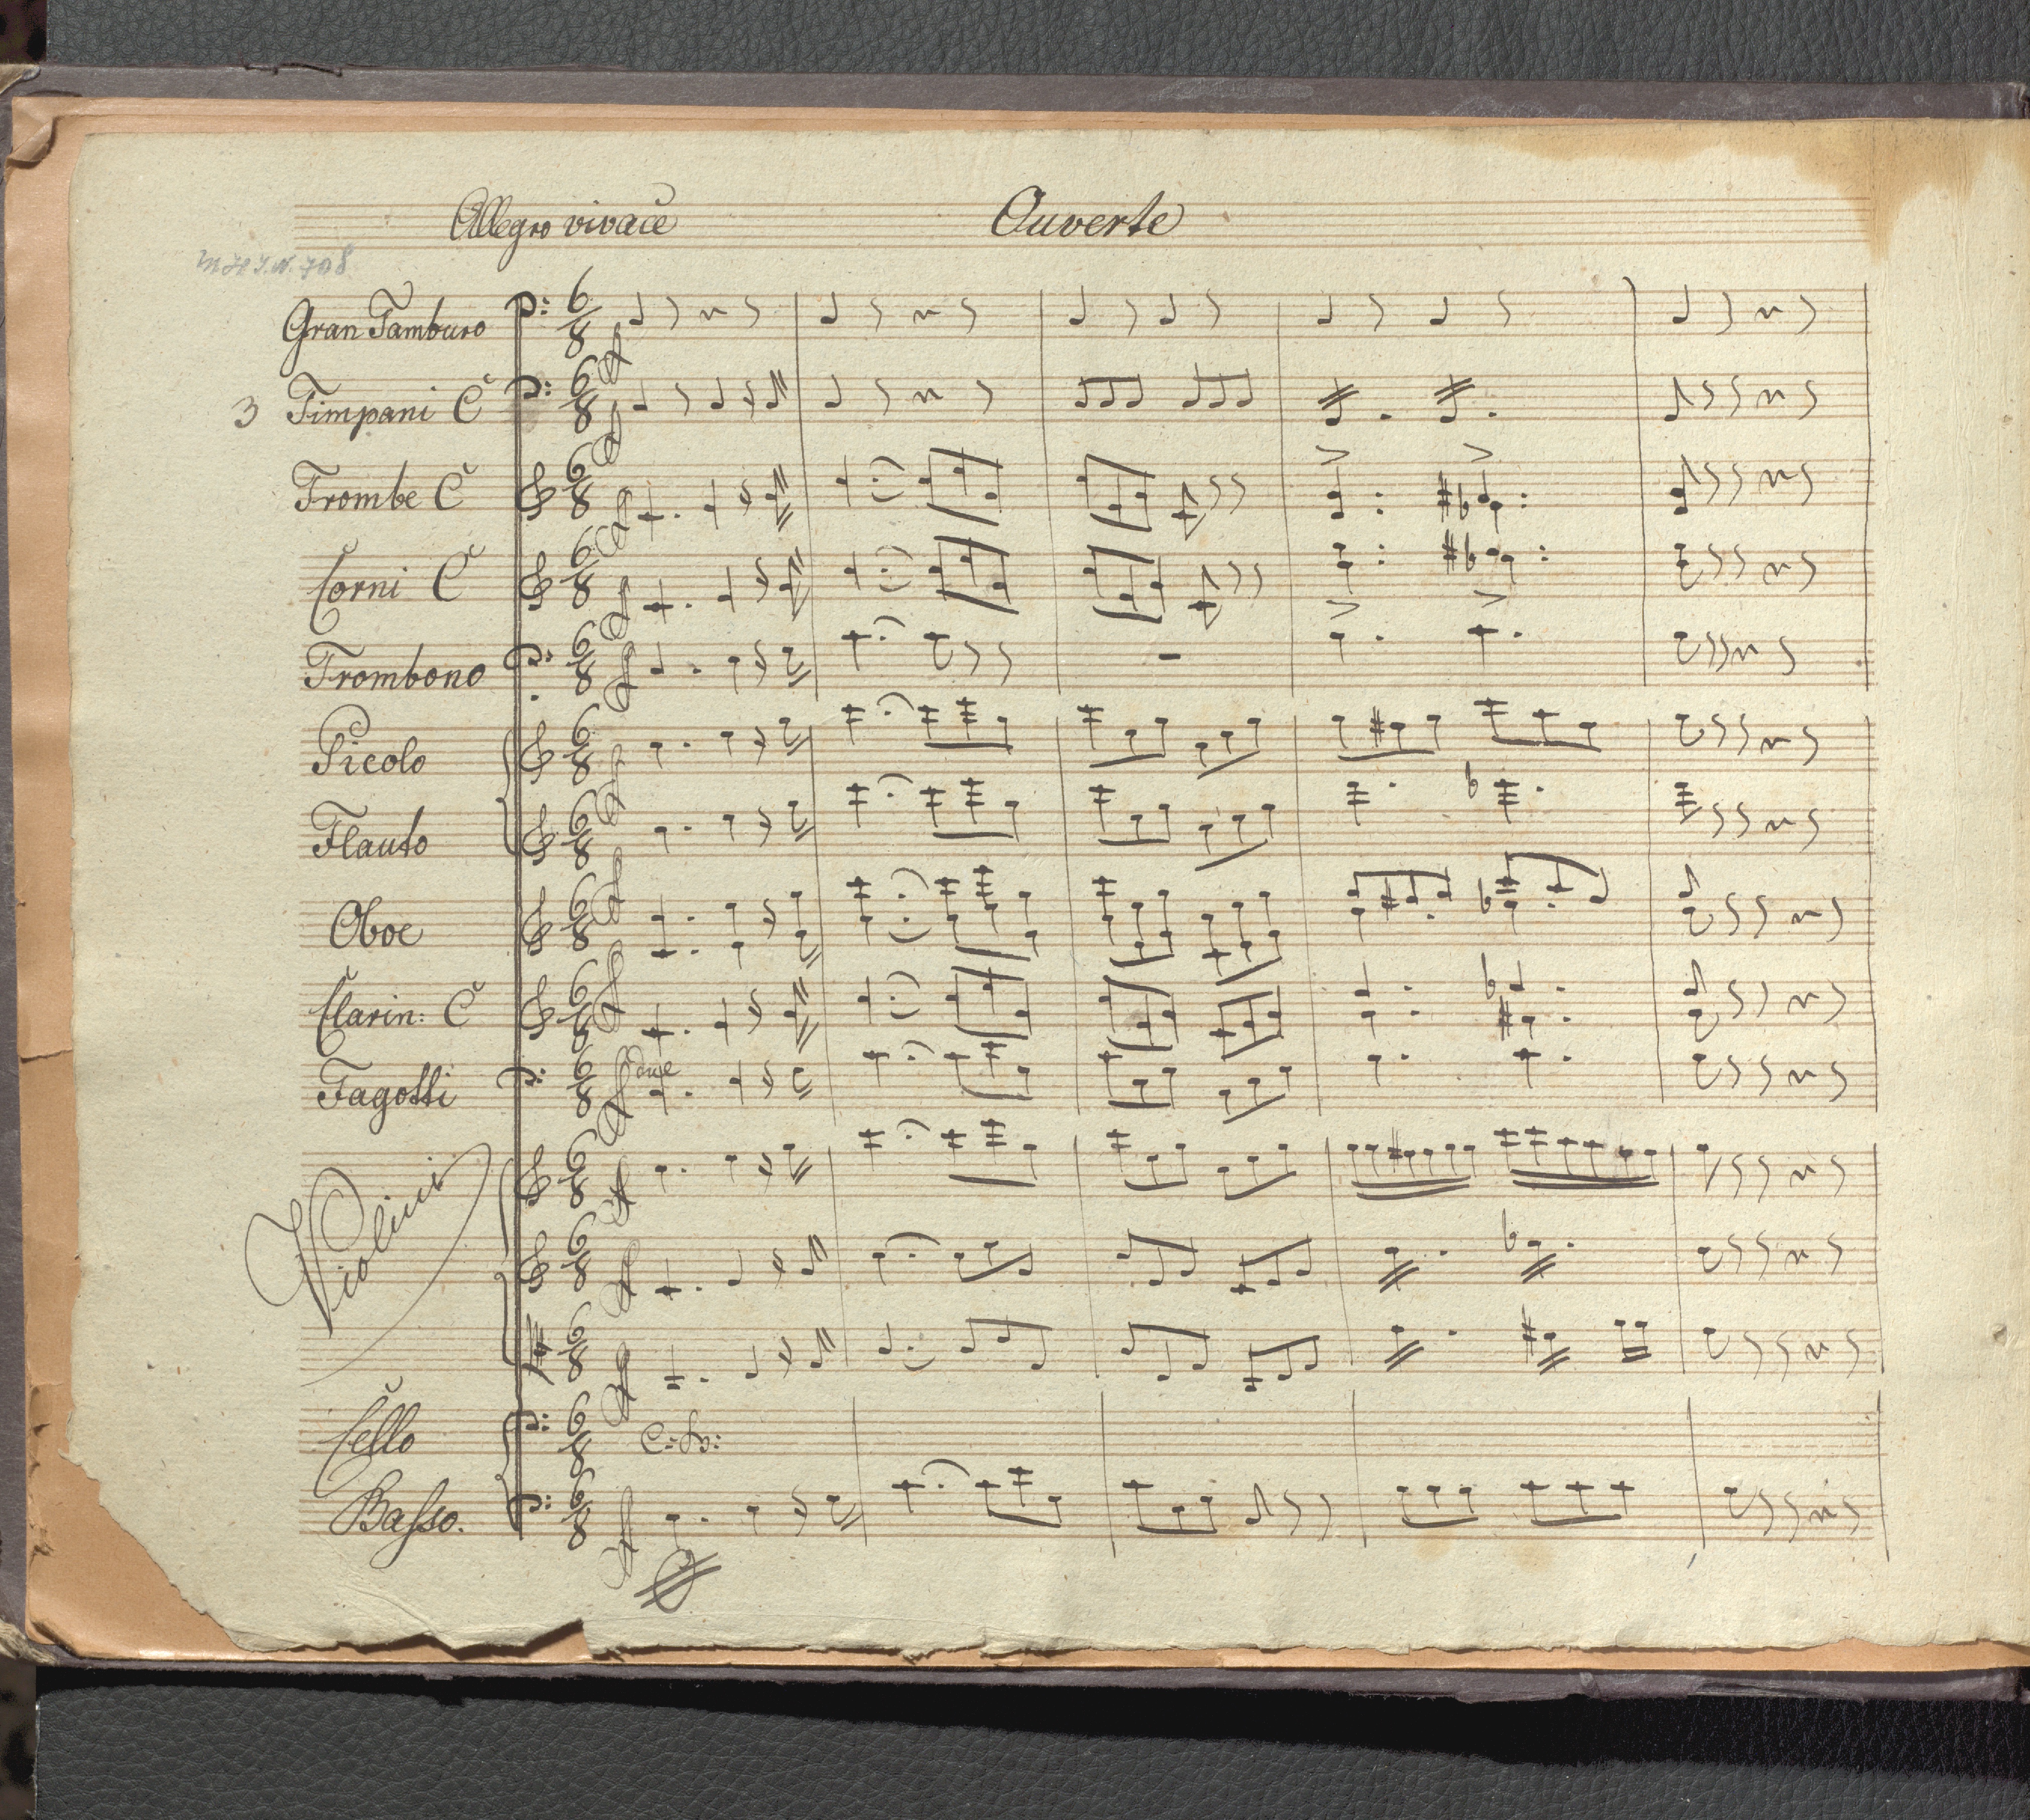 Allegro vivace Ouverte
Gran Tamburo
3 Timpani C
Trombe C
Corni C
Trombono
Picolo
Flauto
Oboe
Clarin: C
Fagotti
due
Violini
Cello
C: B:
Baſso.